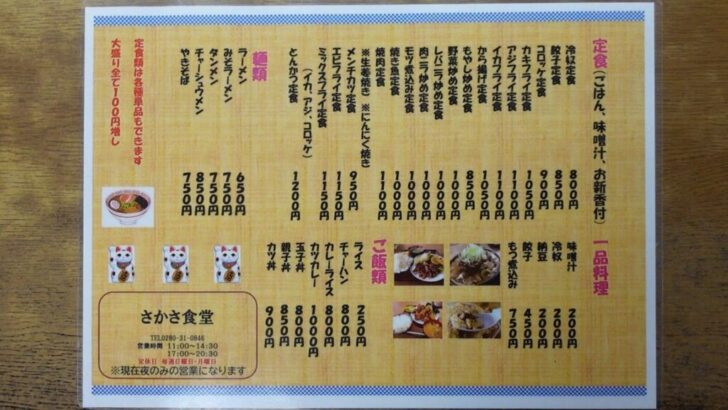 定食(ごはん、味噌汁、お新香付)
冷奴定食 800円
餃子定食 850円
コロッケ定食 900円
カキフライ定食 1050円
アジフライ定食
イカフライ定食
から揚げ定食 1050円
もやし炒め定食 850円
野菜炒め定食 1000円
レバニラ炒め定食 1000円
肉ニラ炒め定食 1000円
モツ煮込み定食 1000円
焼き魚定食 1000円
焼肉定食 1100円
※生姜焼き ※にんにく焼き
メンチカツ定食 950円
エビフライ定食 1150円
ミックスフライ定食 1150円
(イカ、アジ、コロッケ)
とんかつ定食 1200円
麺類
ラーメン 650円
みそラーメン 750円
タンメン 750円
チャーシュウメン 850円
やきそば 750円
定食類は各種単品もできます
大盛り全て100円増し
一品料理
味噌汁 200円
冷奴 200円
納豆 200円
餃子 450円
もつ煮込み 750円
ご飯類
ライス 250円
チャーハン 800円
カレーライス 800円
カツカレー 1000円
玉子丼 800円
親子丼 850円
カツ丼 900円
さかさ食堂
TEL0280-31-0846
営業時間 11:00~14:30
17:00~20:30
定休日・毎週日曜日・月曜日
※現在夜のみの営業になります